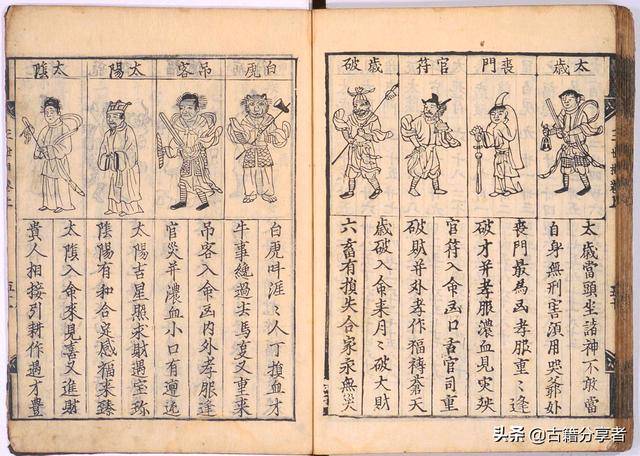 太歲
喪門
官符
歲破
太歲當頭坐諸神不敢當
自身無刑害湏用哭爺
喪門最為凶孝服重〻逢
破才并孝服濃血見災殃
官符入命凶口舌官司重
破財并外孝作福禱蒼天
歲破入命來月〻破大財
六畜有損失合家永無災
白虎
吊客
太陽
太隂
白虎呌涯〻人丁損血才
牛事纏過去馬夏又重來
吊客入命凶内外孝服逢
官災并濃血小口有遭迍
太陽吉星照求財遇宝珎
陰陽有和合定感福來臻
太隂入命來見喜又進財
貴人相接引耕作遇才豊
头条 @古籍分享者